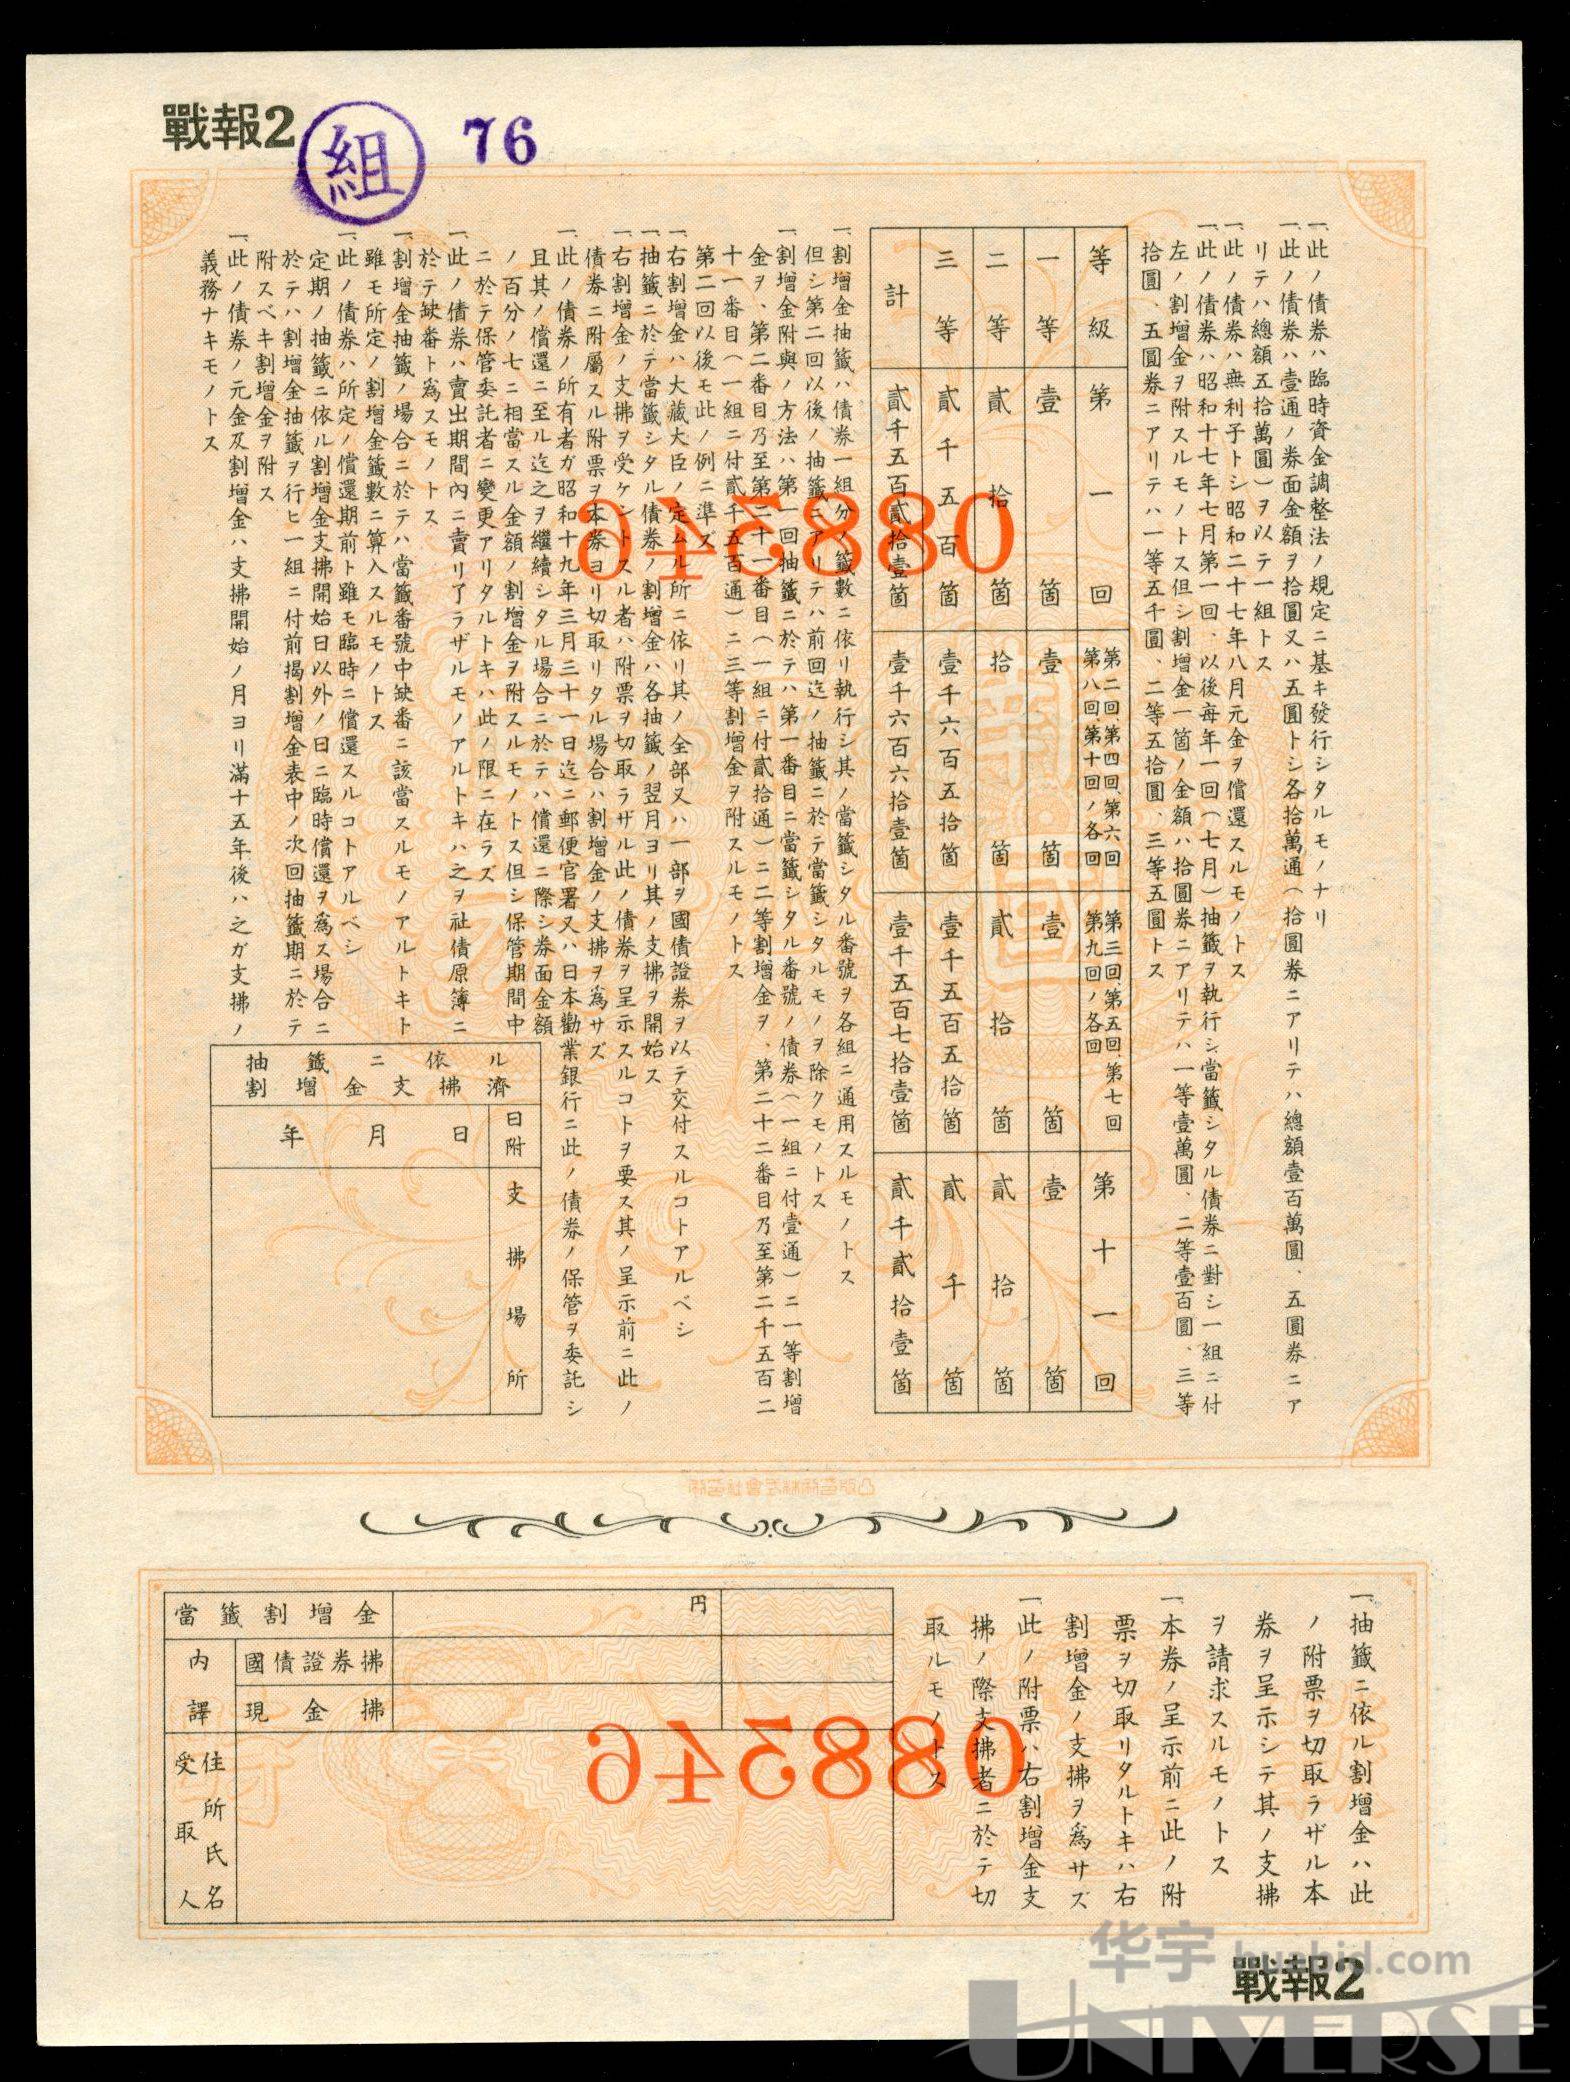 戰報2
組
76
一、此ノ債券ハ臨時資金調整法ノ規定ニ基キ發行シタルモノナリ
一、此ノ債券ハ壹通ノ券面金額ヲ拾圓又ハ五圓トシ各拾萬通(拾圓券ニアリテハ總額壹百萬圓、五圓券ニア
リテハ總額五拾萬圓)ヲ以テ一組トス
一、此ノ債券ハ無利子トシ昭和二十七年八月元金ヲ償還スルモノトス
一、此ノ債券ハ昭和十七年七月第一回、以後每年一回(七月)抽籤ヲ執行シ當籤シタル債券ニ對シ一組ニ付
左ノ割增金ヲ附スルモノトス但シ割增金一箇ノ金額ハ拾圓券ニアリテハ一等壹萬圓、二等壹百圓、三等
拾圓、五圓券ニアリテハ一等五千圓、二等五拾圓、三等五圓トス
等級 第一回 第二回、第四回、第六回 第八回、第十回ノ各回 第三回、第五回、第七回 第九回ノ各回 第十一回
一等 壹箇 壹箇 壹箇 壹箇
二等 貳拾箇 拾箇 貳拾箇 貳拾箇
三等 貳千五百箇 壹千六百五拾箇 壹千五百五拾箇 貳千箇
計 貳千五百貳拾壹箇 壹千六百六拾壹箇 壹千五百七拾壹箇 貳千貳拾壹箇
一、割增金抽籤ハ債券一組分ノ籤數ニ依リ執行シ其ノ當籤シタル番號ヲ各組ニ通用スルモノトス
但シ第二回以後ノ抽籤ニアリテハ前回迄ノ抽籤ニ於テ當籤シタルモノヲ除クモノトス
一、割增金附與ノ方法ハ第一回抽籤ニ於テハ第一番目ニ當籤シタル番號ノ債券(一組ニ付壹通)ニ一等割增
金ヲ、第二番目乃至第二十一番目(一組ニ付貳拾通)ニ二等割增金ヲ、第二十二番目乃至第二千五百二
十一番目(一組ニ付貳千五百通)ニ三等割增金ヲ附スルモノトス
第二回以後モ此ノ例ニ準ズ
一、右割增金ハ大藏大臣ノ定ムル所ニ依リ其ノ全部又ハ一部ヲ國債證券ヲ以テ交付スルコトアルベシ
一、抽籤ニ於テ當籤シタル債券ノ割增金ハ各抽籤ノ翌月ヨリ其ノ支拂ヲ開始ス
一、右割增金ノ支拂ヲ受ケントスル者ハ附票ヲ切取ラザル此ノ債券ヲ呈示スルコトヲ要ス其ノ呈示前ニ此ノ
債券ニ附屬スル附票ヲ本券ヨリ切取リタル場合ハ割增金ノ支拂ヲ爲サズ
一、此ノ債券ノ所有者ガ昭和十九年三月三十一日迄ニ郵便官署又ハ日本勸業銀行ニ此ノ債券ノ保管ヲ委託シ
且其ノ償還ニ至ル迄之ヲ繼續シタル場合ニ於テハ償還ニ際シ券面金額
ノ百分ノ七ニ相當スル金額ノ割增金ヲ附スルモノトス但シ保管期間中
ニ於テ保管委託者ニ變更アリタルトキハ此ノ限ニ在ラズ
一、此ノ債券ハ賣出期間內ニ賣リ了ラザルモノアルトキハ之ヲ社債原簿ニ
於テ缺番ト爲スモノトス
一、割增金抽籤ノ場合ニ於テハ當籤番號中缺番ニ該當スルモノアルトキト
雖モ所定ノ割增金籤數ニ算入スルモノトス
一、此ノ債券ハ所定ノ償還期前ト雖モ臨時ニ償還スルコトアルベシ
定期ノ抽籤ニ依ル割增金支拂開始日以外ノ日ニ臨時償還ヲ爲ス場合ニ
於テハ割增金抽籤ヲ行ヒ一組ニ付前揭割增金表中ノ次回抽籤期ニ於テ
附スベキ割增金ヲ附ス
一、此ノ債券ノ元金及割增金ハ支拂開始ノ月ヨリ滿十五年後ハ之ガ支拂ノ
義務ナキモノトス
088346
抽籤ニ依ル
割增金支拂濟
日附 年 月 日
支拂場所
凸版印刷株式會社印刷
一、抽籤ニ依ル割增金ハ此
ノ附票ヲ切取ラザル本
券ヲ呈示シテ其ノ支拂
ヲ請求スルモノトス
一、本券ノ呈示前ニ此ノ附
票ヲ切取リタルトキハ右
割增金ノ支拂ヲ爲サズ
一、此ノ附票ハ右割增金支
拂ノ際支拂者ニ於テ切
取ルモノトス
當籤割增金 円
內譯 國債證券拂
現金拂
受取人 住所氏名
088346
戰報2
华宇 huabid.com
UNIVERSE